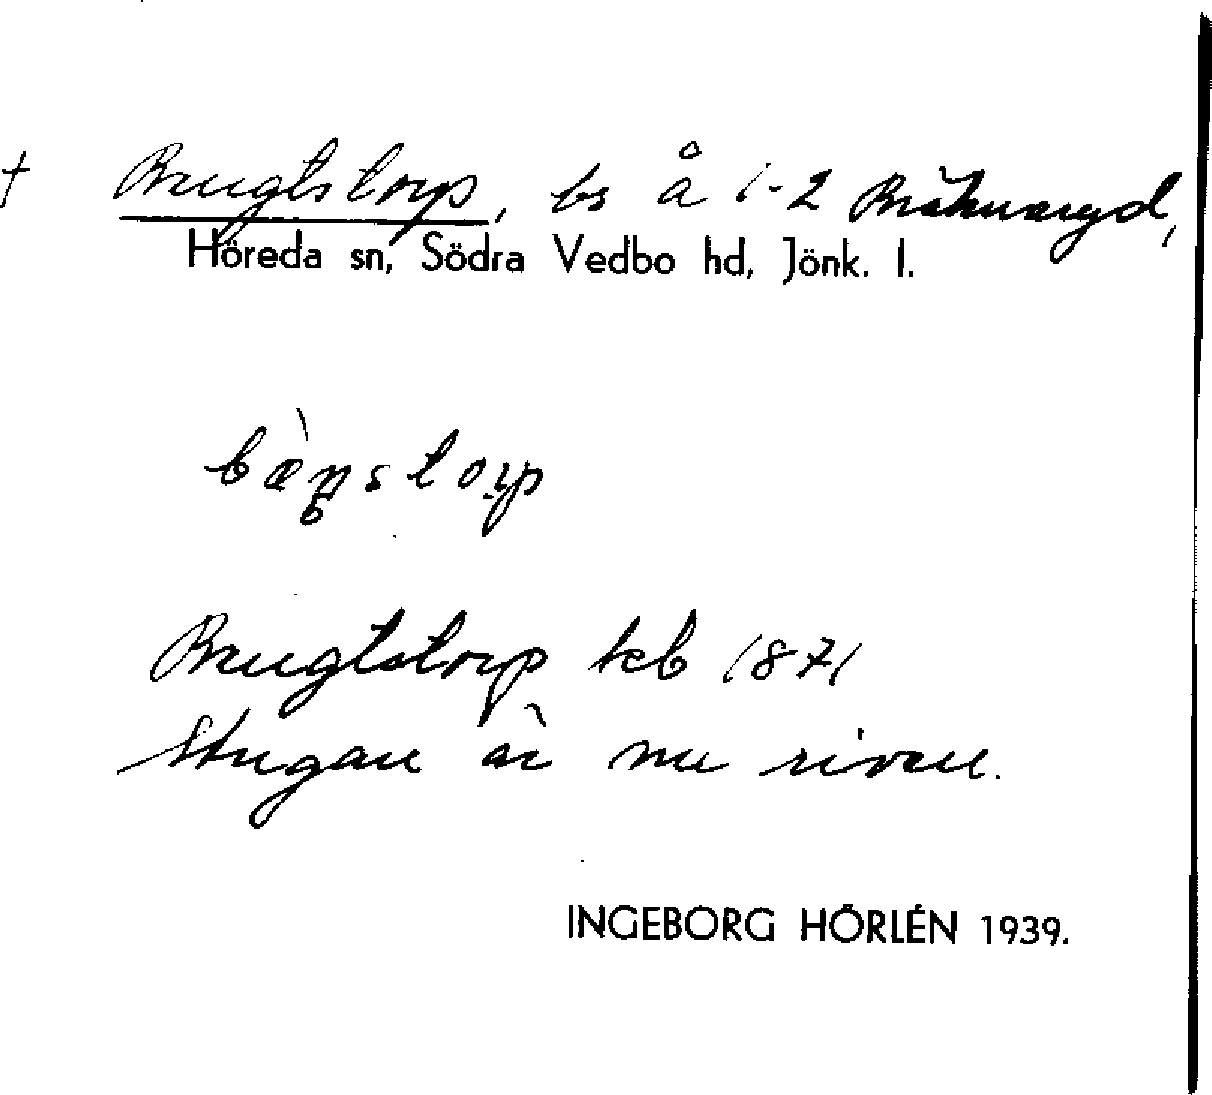 † Bengtstorp, bs å 1-2
Höreda sn, Södra Vedbo hd, Jönk. l.
bæ̀ŋstorp
Bengtstorp kb 1871
Stugan är nu riven.
INGEBORG HÖRLÉN 1939.